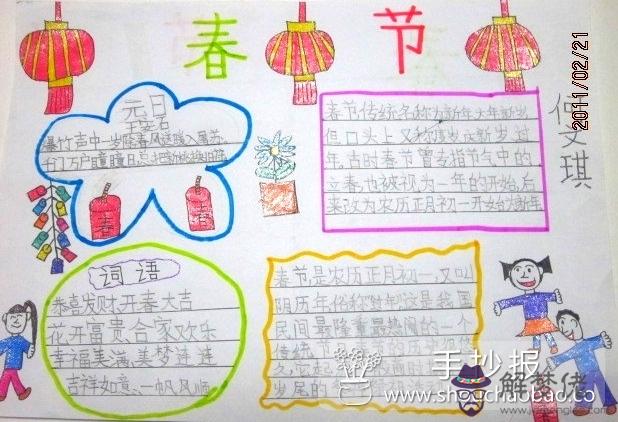 春 节
2011/02/21
何文琪
元日
王安石
爆竹声中一岁除,春风送暖入屠苏
千门万户曈曈日,总把新桃换旧符
春
春
春节,传统名称为新年、大年、新岁,
但口头上又称度岁、庆新岁、过
年,古时春节曾专指节气中的
立春,也被视为一年的开始,后
来改为农历正月初一开始为新年
词语
恭喜发财,开春大吉
花开富贵,合家欢乐
幸福美满,美梦连连
吉祥如意,一帆风顺
春节,是农历正月初一,又叫
阴历年,俗称
民间最隆重最热闹的一个
传统节
久,它起
岁尾的
手抄报
www.shouchaobao.co
解梦佬